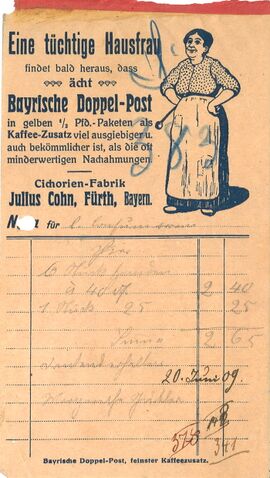 Eine tüchtige Hausfrau
findet bald heraus, dass
ächt
Bayrische Doppel-Post
in gelben ½ Pfd.-Paketen als
Kaffee-Zusatz viel ausgiebiger u.
auch bekömmlicher ist, als die oft
minderwertigen Nachahmungen.
Cichorien-Fabrik
Julius Cohn, Fürth, Bayern.
für
6 Stück
à 40 2 40
1 Stück 25 25
Summa 2 65
20. Juni 09.
378
341
Bayrische Doppel-Post, feinster Kaffeezusatz.